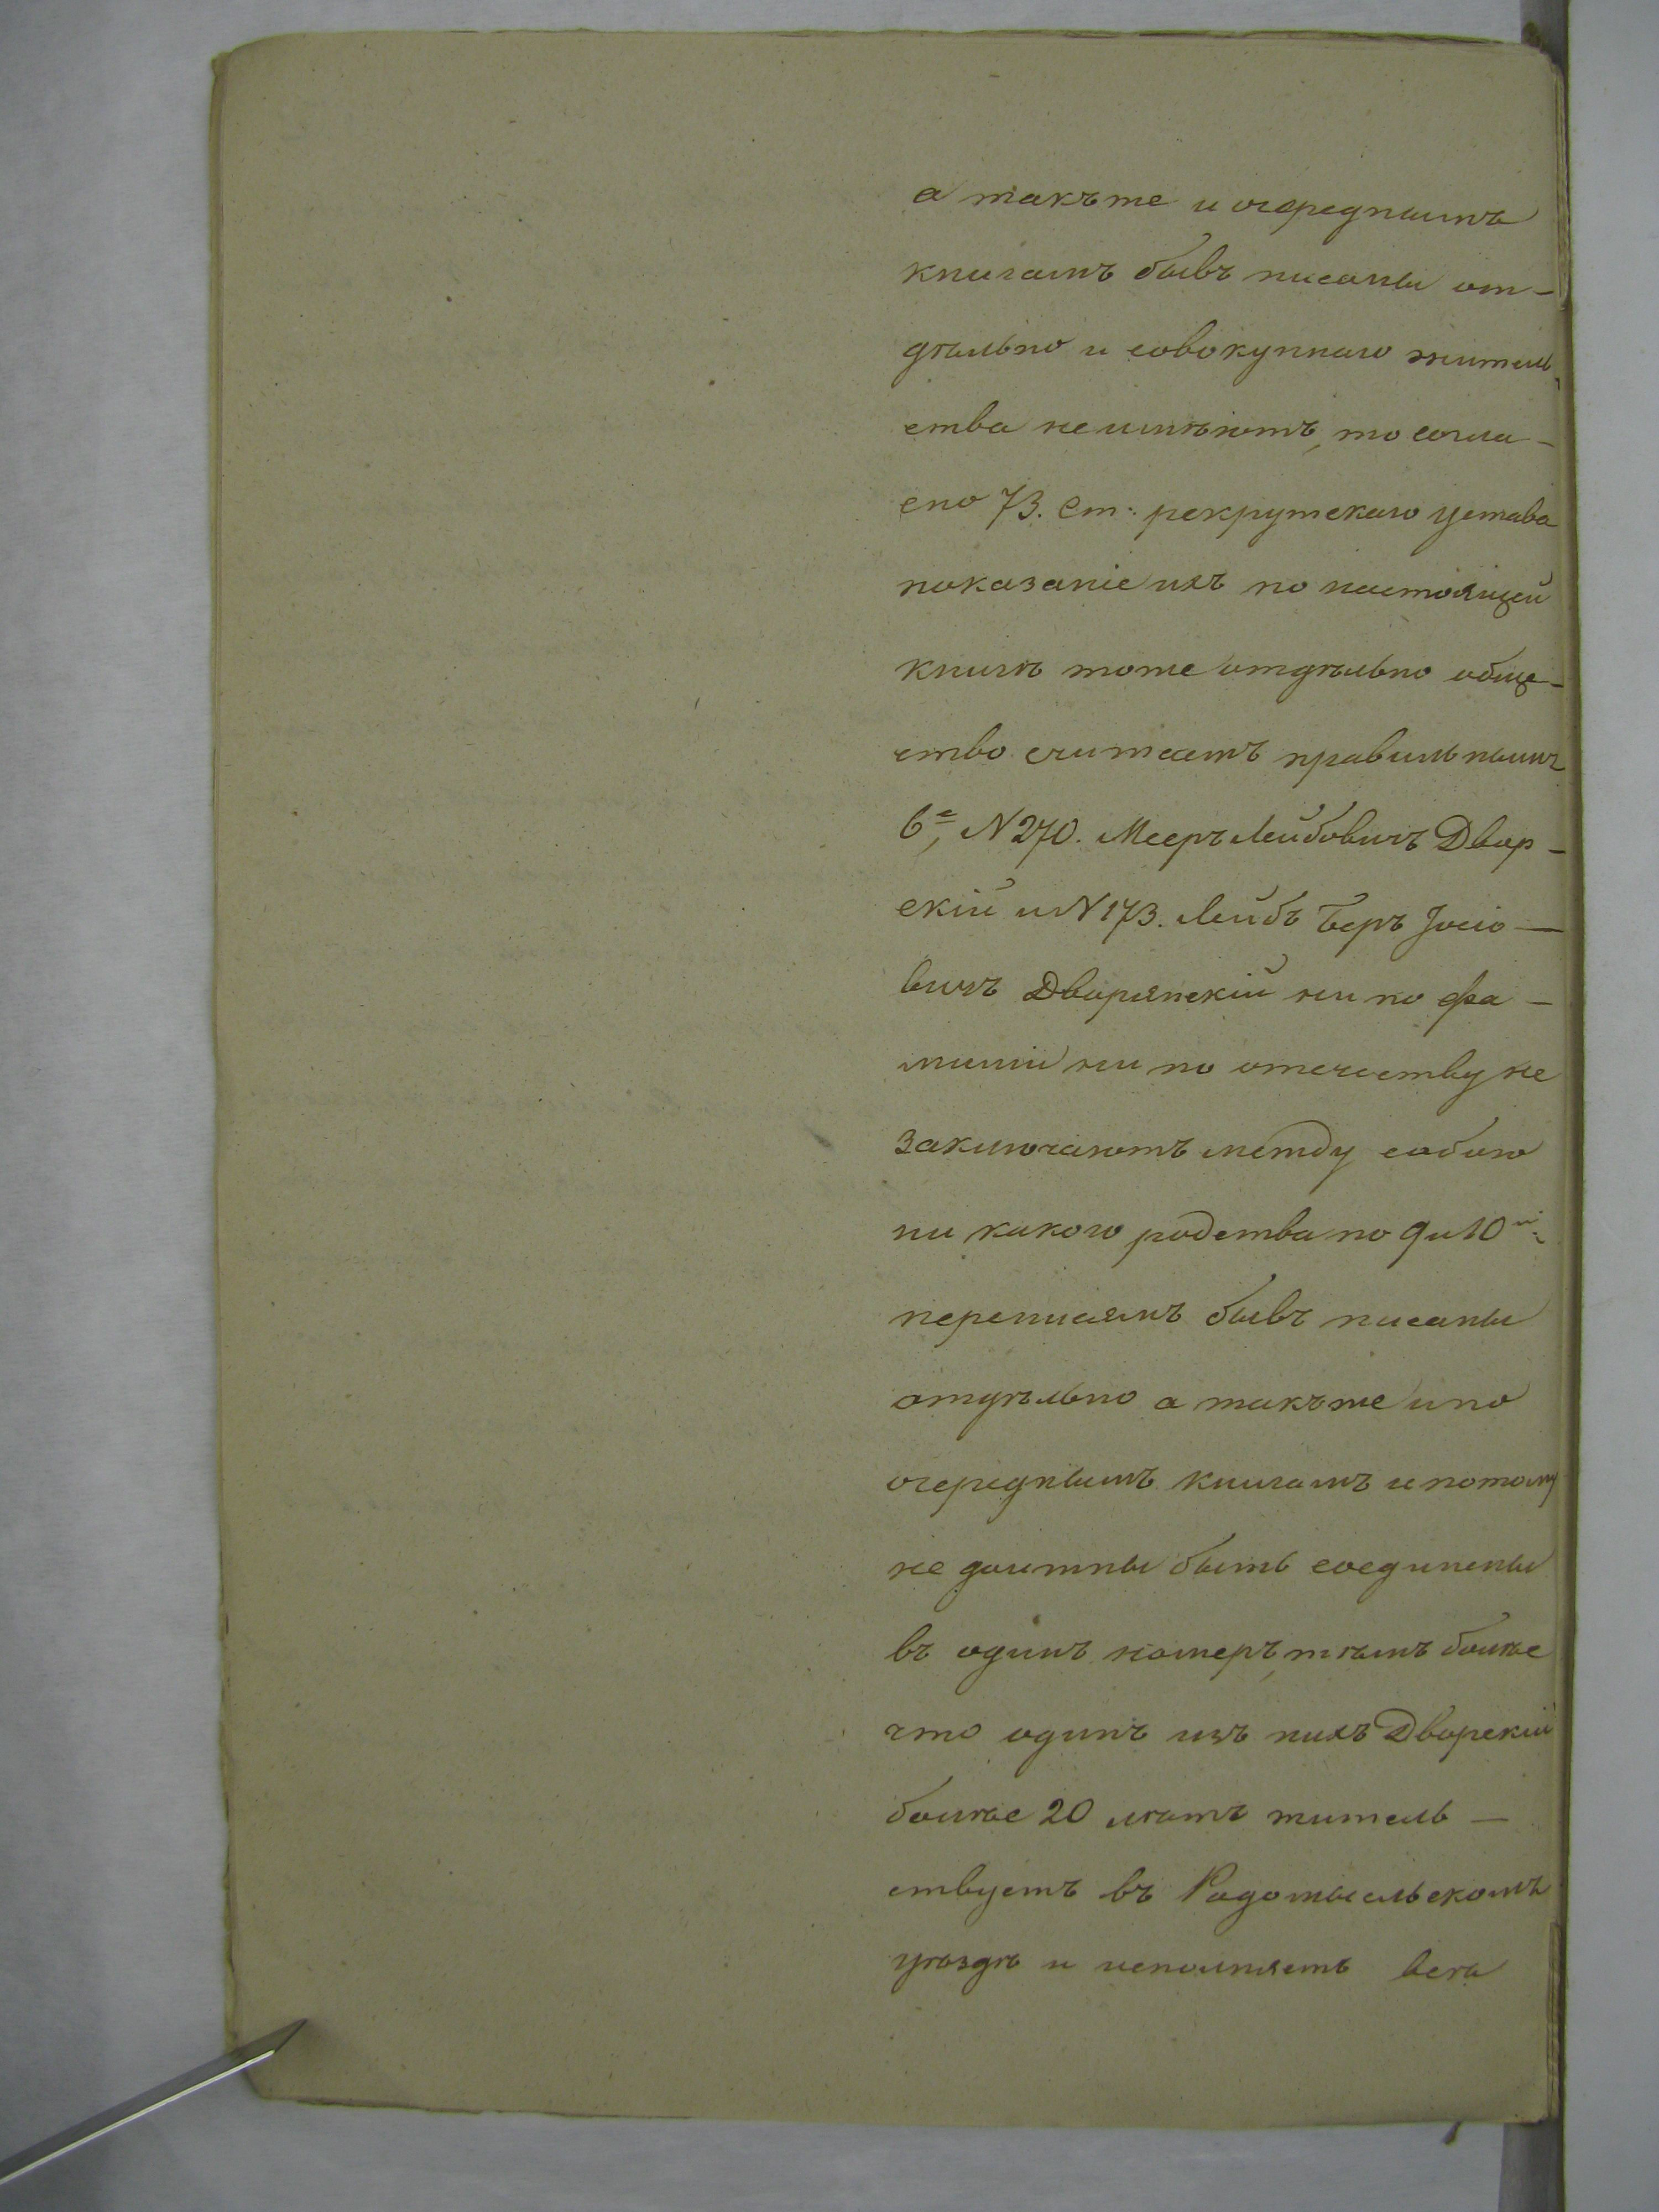 а такъже и очереднымъ
книгамъ бывъ писаны от-
дѣльно и совокупнаго житель-
ства не имѣютъ, то согла-
сно 73. Ст. рекрутскаго устава
показаніе ихъ по настоящей
книгѣ тоже отдѣльно обще-
ство считаетъ правильнымъ
6е, N 270. Мееръ Лейбовичъ Двор-
скій и N 173. Лейбъ Беръ Іосіо-
вичъ Дворянскій ни по фа-
миліи ни по отечеству не
заключаютъ между собою
ни какого родства по 9 и 10й
переписямъ бывъ писаны
отдѣльно а такъже и по
очереднымъ книгамъ и потому
не должны быть соединены
въ одинъ номеръ, тѣмъ болѣе
что одинъ изъ нихъ Дворскій
болѣе 20 лѣтъ житель-
ствуетъ въ Радомысльскомъ
уѣздѣ и исполняетъ всѣ